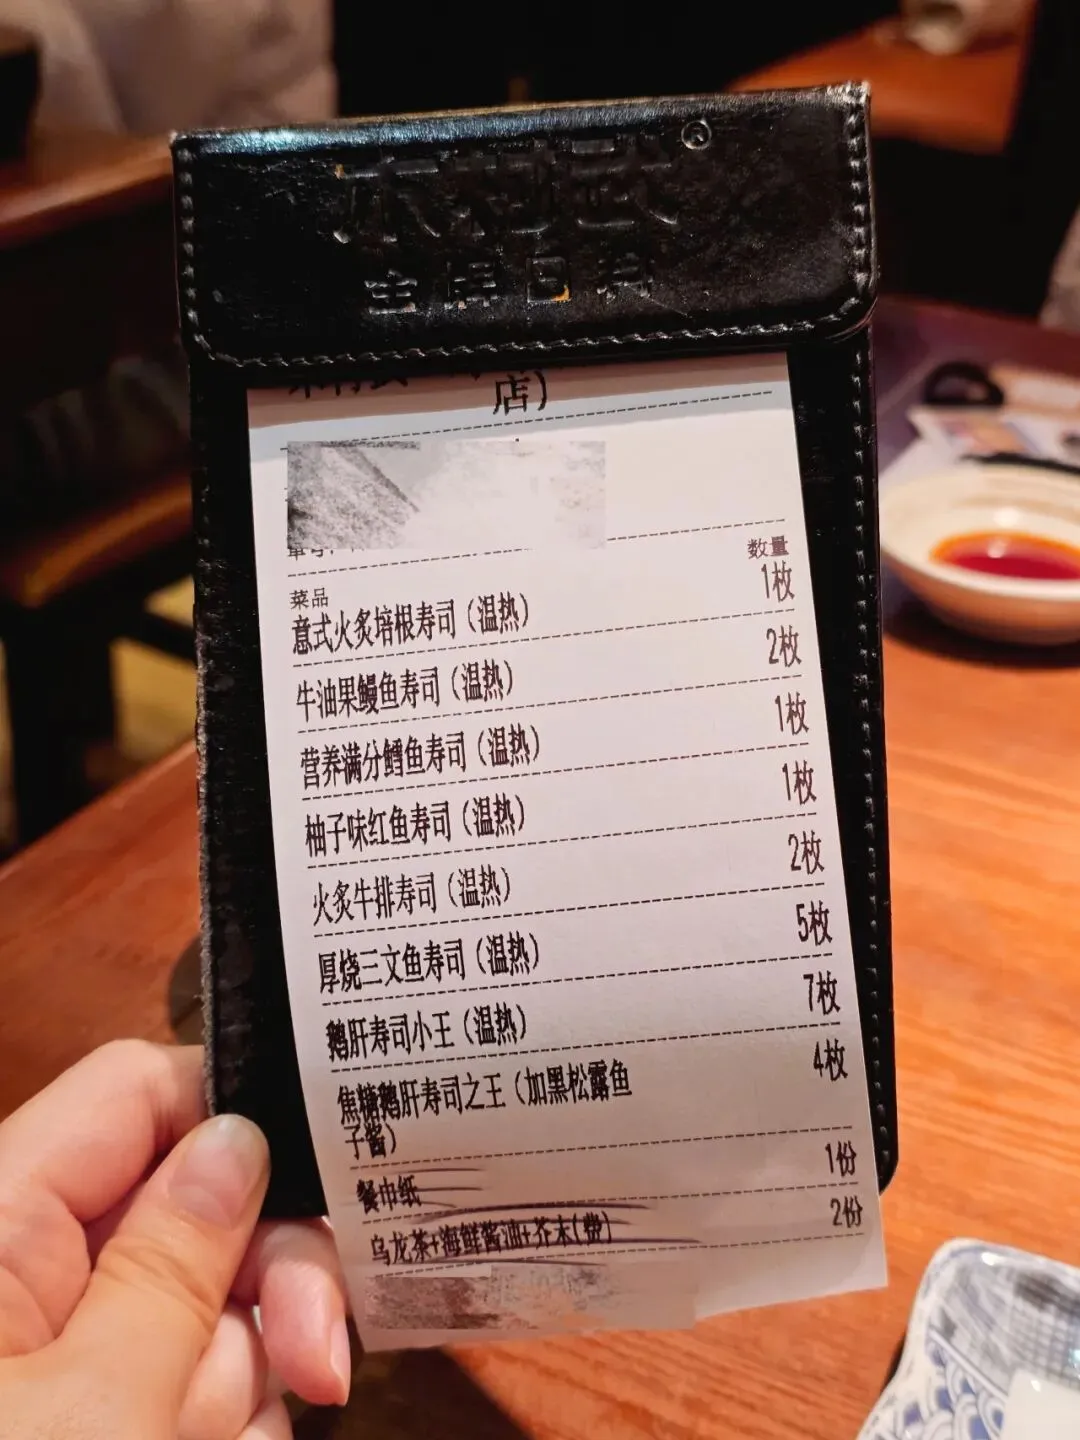 木村武®
主牌日料
店）
菜品 数量
意式火炙培根寿司（温热） 1枚
牛油果鳗鱼寿司（温热） 2枚
营养满分鳕鱼寿司（温热） 1枚
柚子味红鱼寿司（温热） 1枚
火炙牛排寿司（温热） 2枚
厚烧三文鱼寿司（温热） 5枚
鹅肝寿司小王（温热） 7枚
焦糖鹅肝寿司之王（加黑松露鱼 4枚
子酱）
餐巾纸 1份
乌龙茶+海鲜酱油+芥末(费) 2份